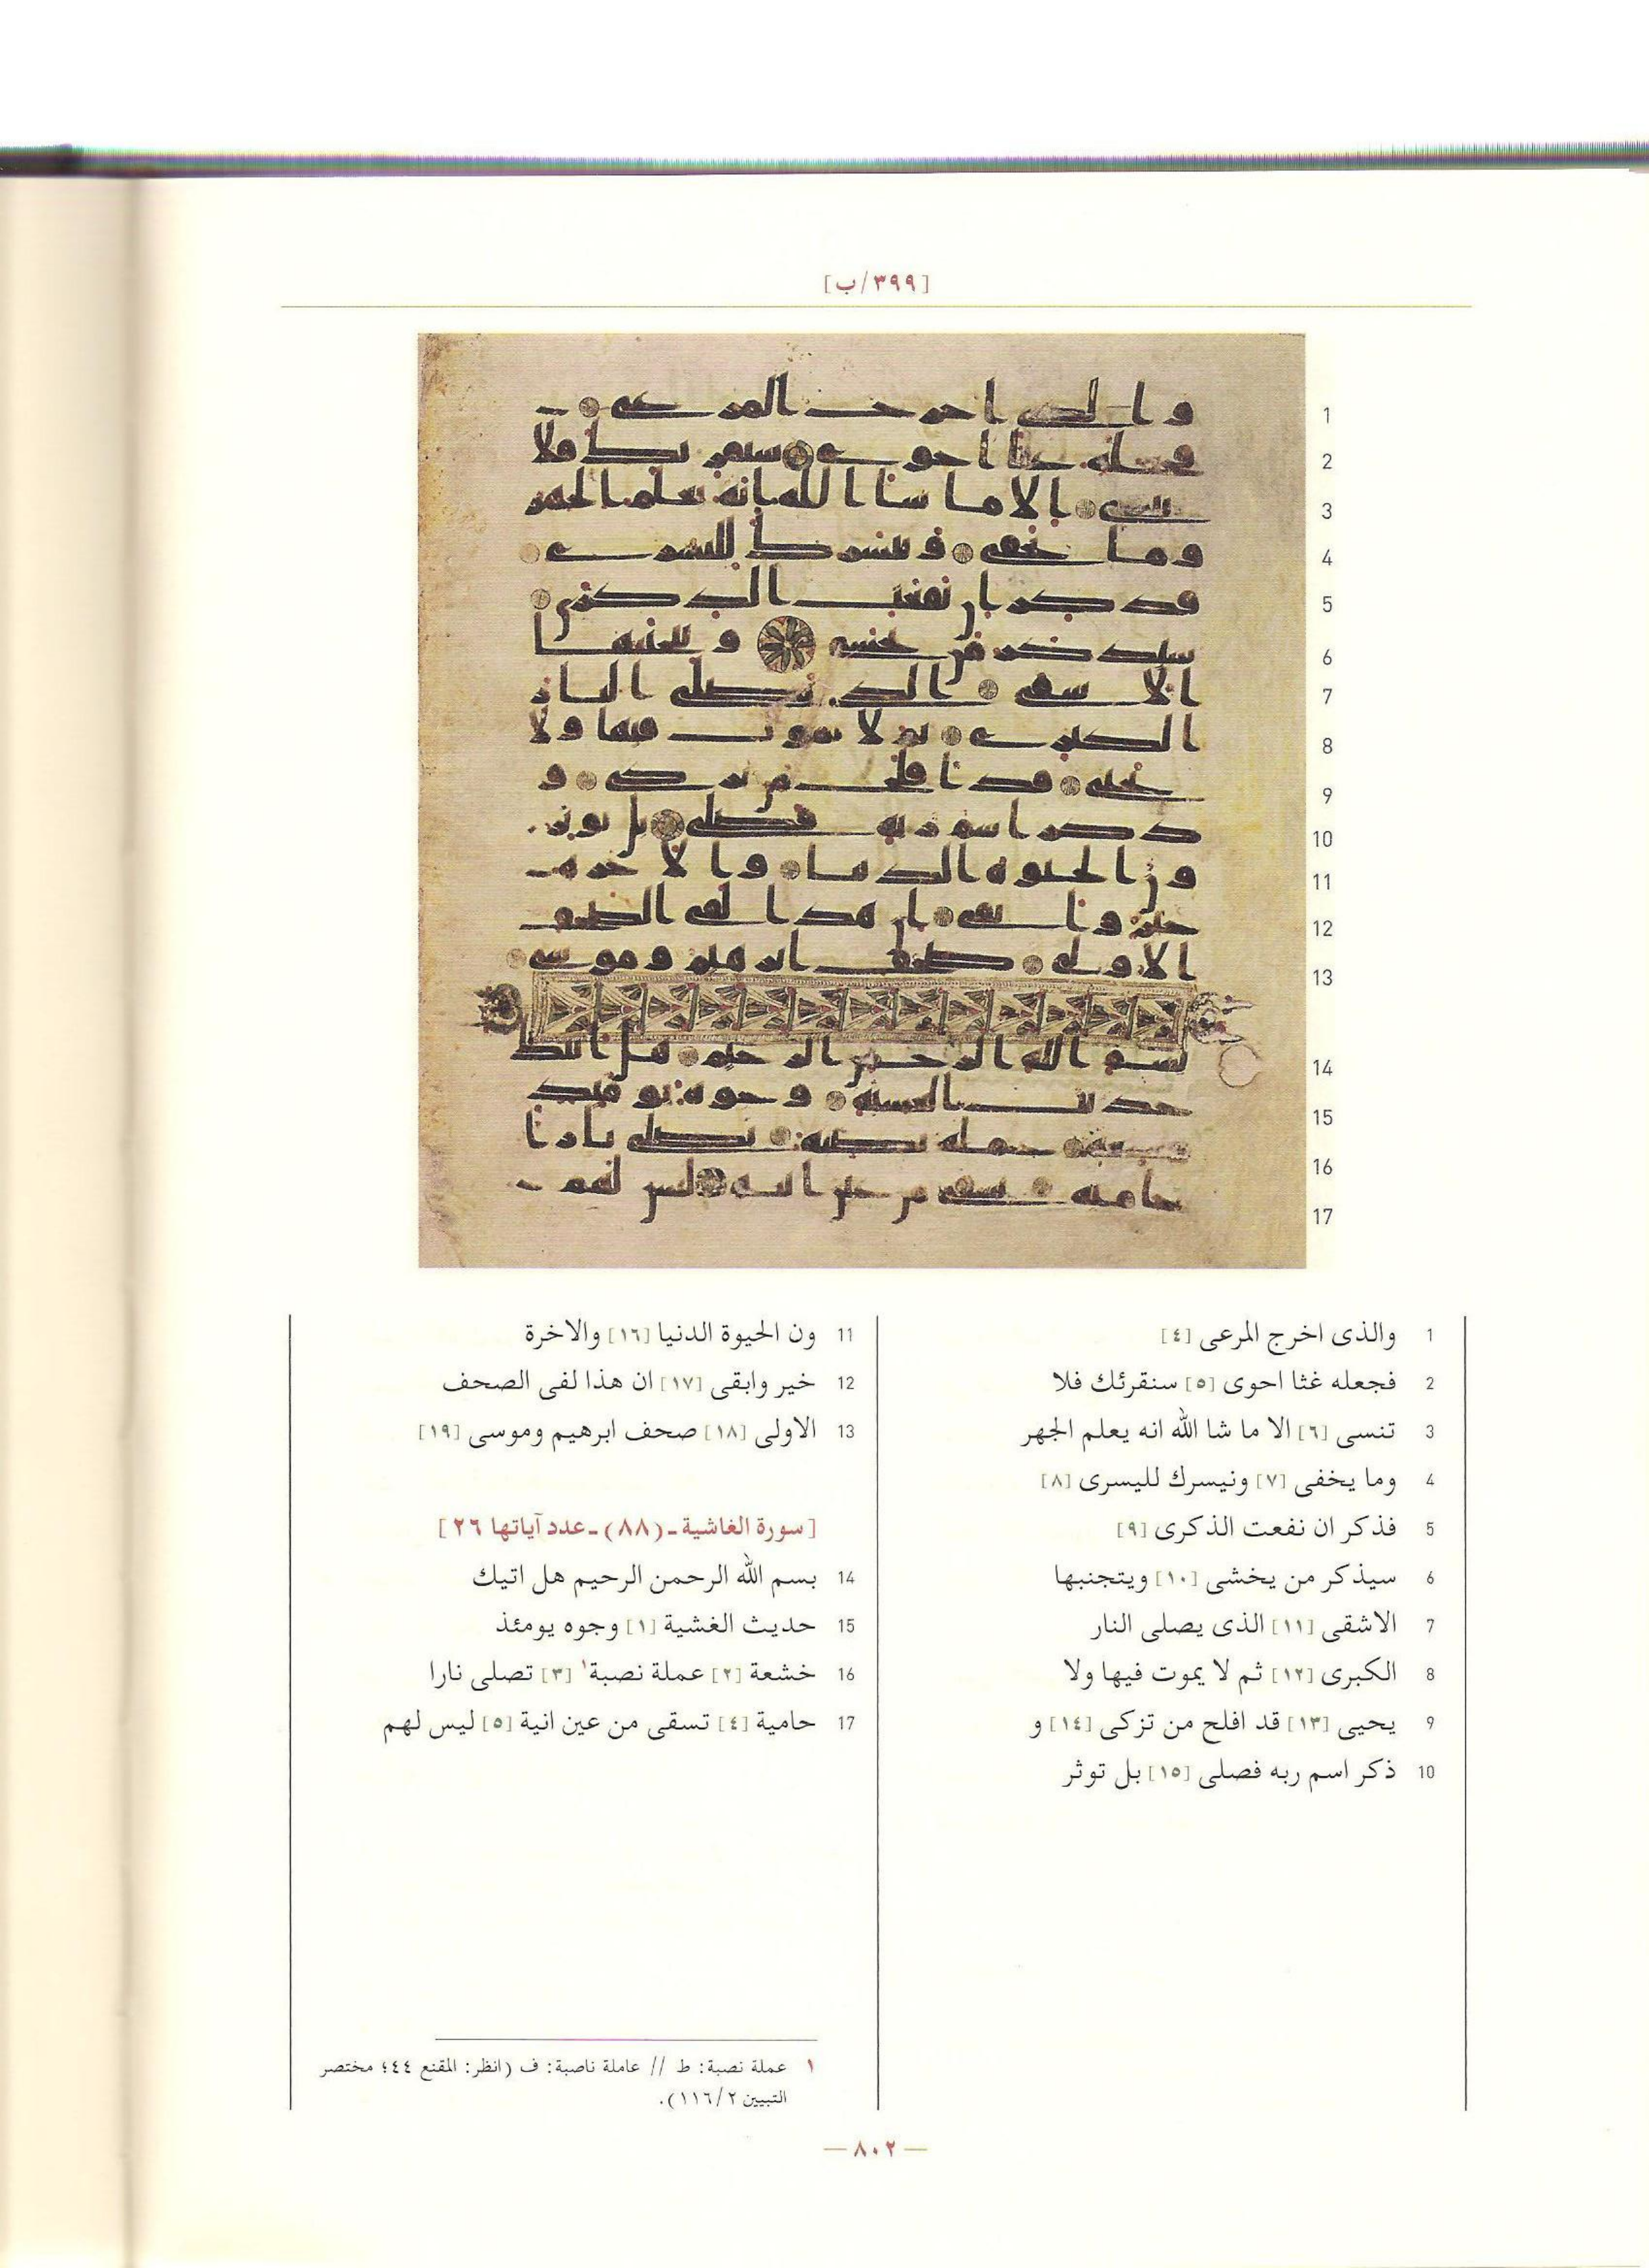 [٣٩٩/ب]
1 والذى اخرج المرعى [٤]
2 فجعله غثا احوى [٥] سنقرئك فلا
3 تنسى [٦] الا ما شا الله انه يعلم الجهر
4 وما يخفى [٧] ونيسرك لليسرى [٨]
5 فذكر ان نفعت الذكرى [٩]
6 سيذكر من يخشى [١٠] ويتجنبها
7 الاشقى [١١] الذى يصلى النار
8 الكبرى [١٢] ثم لا يموت فيها ولا
9 يحيى [١٣] قد افلح من تزكى [١٤] و
10 ذكر اسم ربه فصلى [١٥] بل توثر
11 ون الحيوة الدنيا [١٦] والاخرة
12 خير وابقى [١٧] ان هذا لفى الصحف
13 الاولى [١٨] صحف ابرهيم وموسى [١٩]
[سورة الغاشية - (٨٨) - عدد آياتها ٢٦]
14 بسم الله الرحمن الرحيم هل اتيك
15 حديث الغشية [١] وجوه يومئذ
16 خشعة [٢] عملة نصبة١ [٣] تصلى نارا
17 حامية [٤] تسقى من عين انية [٥] ليس لهم
١ عملة نصبة: ط // عاملة ناصبة: ف (انظر: المقنع ٤٤؛ مختصر
التبيين ١١٦/٢).
— ٨٠٢ —